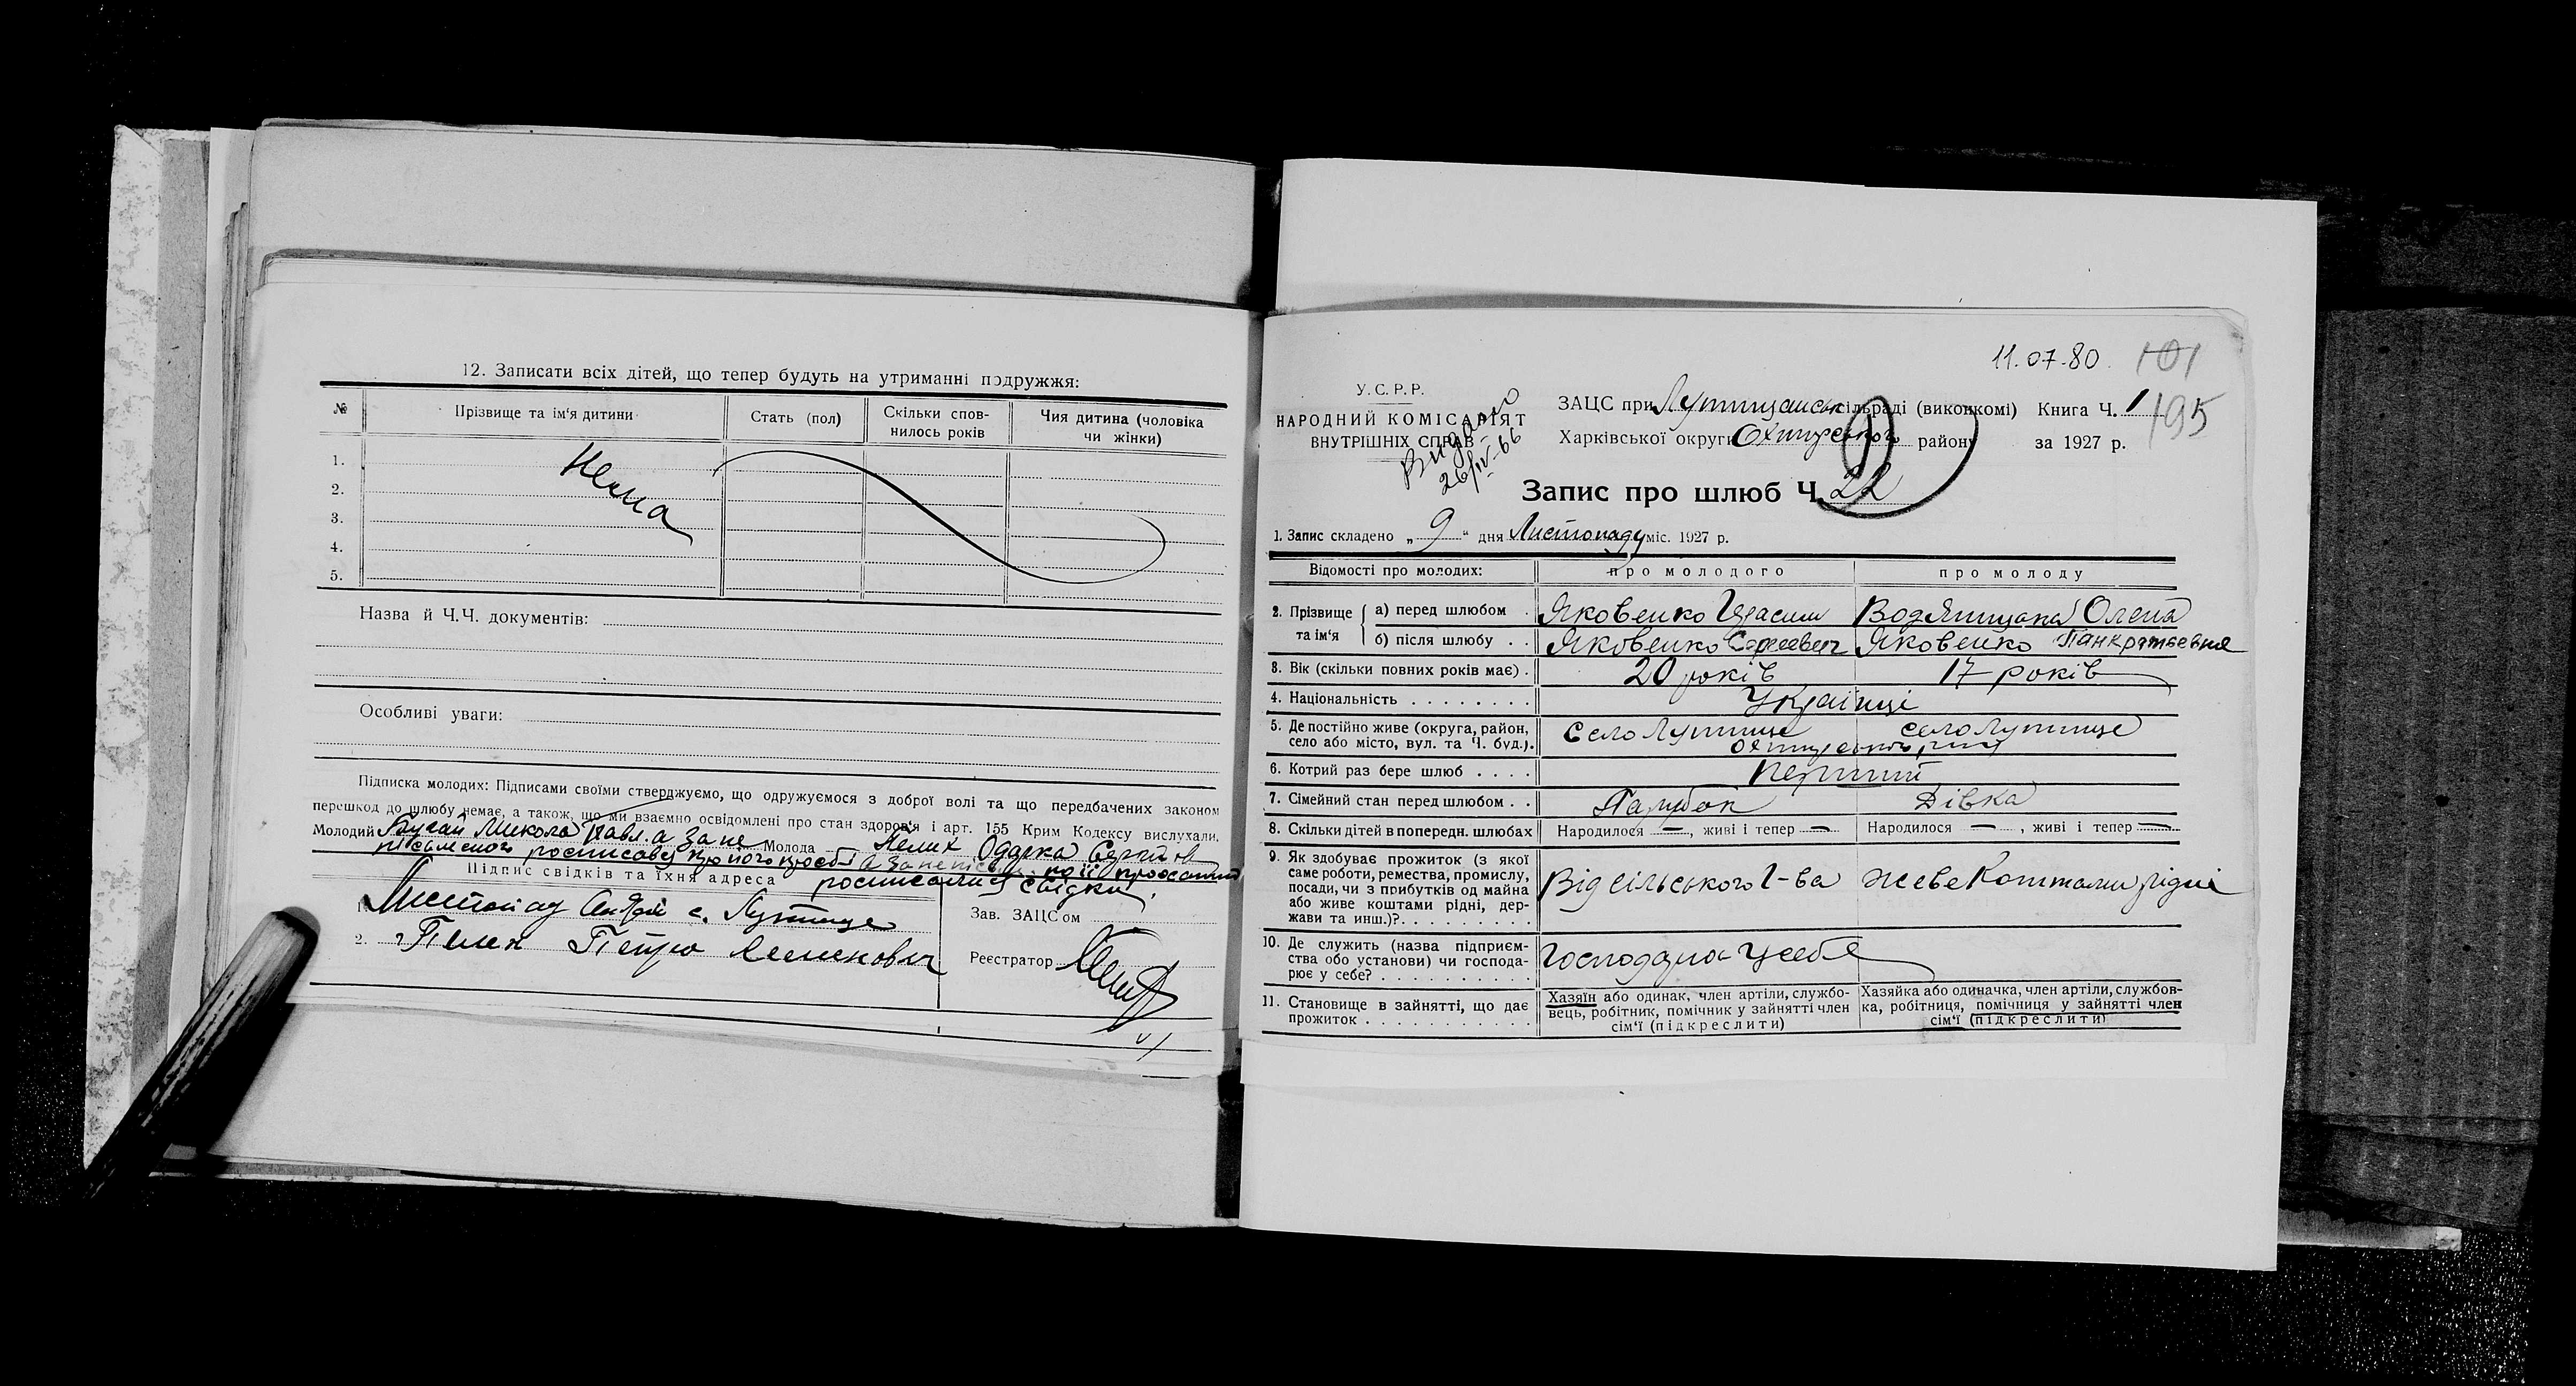 12. Записати всіх дітей, що тепер будуть на утриманні подружжя:
№ Прізвище та ім'я дитини Стать (пол) Скільки спов- Чия дитина (чоловіка
нилось років чи жінки)
1.
Нема
2.
3.
4.
5.
Назва й Ч.Ч. документів:
Особливі уваги:
Підписка молодих: Підписами своїми стверджуємо, що одружуємося з доброї волі та що передбачених законом
перешкод до шлюбу немає, а також, що ми взаємно освідомлені про стан здоров'я і арт. 155 Крим Кодексу вислухали.
Молодий Микола Павл. а за не Молода Одарка
росписався просьбі
Підпис свідків та їхня адреса росписалися свідки
1. Листопад с. Лутище Зав. ЗАЦСом
2. Петро Семенович Реєстратор
11.07.80. 101
У.С.Р.Р.
НАРОДНИЙ КОМІСАРІЯТ
ВНУТРІШНІХ СПРАВ
Видано
26/IV-66
ЗАЦС при Лутищанськ сільраді (виконкомі) Книга Ч. 1 195
Харківської округи Охтирського району за 1927 р.
Запис про шлюб Ч. 22
1. Запис складено „ 9 “ дня Листопаду міс. 1927 р.
Відомості про молодих: про молодого про молоду
2. Прізвище та ім'я а) перед шлюбом . Яковенко Герасим Водяницька Олена
б) після шлюбу . . Яковенко Сергеевич Яковенко Панкратьевна
3. Вік (скільки повних років має) . 20 років 17 років
4. Національність . . . . . . . . Українці
5. Де постійно живе (округа, район, село Лутище село Лутище
село або місто, вул. та Ч. буд.). Охтирського
6. Котрий раз бере шлюб . . . . Перший
7. Сімейний стан перед шлюбом . . Парубок Дівка
8. Скільки дітей в попередн. шлюбах Народилося — , живі і тепер — Народилося — , живі і тепер —
9. Як здобуває прожиток (з якої
саме роботи, ремества, промислу,
посади, чи з прибутків од майна Від сільського г-ва живе коштами рідні
або живе коштами рідні, дер-
жави та инш.)?. . . . . . . . .
10. Де служить (назва підприєм-
ства або установи) чи господа- Господарює у себе
рює у себе? . . . . . . . . . .
11. Становище в зайнятті, що дає Хазяїн або одинак, член артілі, службо- Хазяйка або одиначка, член артілі, службов-
прожиток . . . . . . . . . . . вець, робітник, помічник у зайнятті член ка, робітниця, помічниця у зайнятті член
сім'ї (підкреслити) сім'ї (підкреслити)